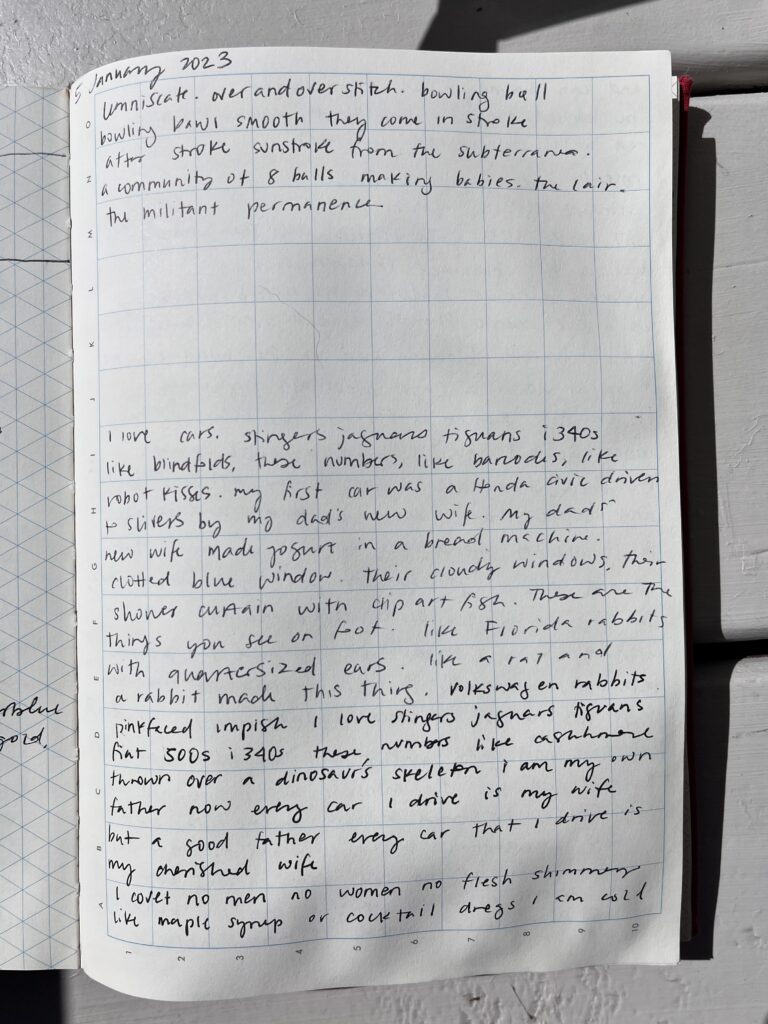 5 January 2023
lemniscate. over and over stitch. bowling ball
bowling bawl smooth they come in stroke
after stroke sunstroke from the subterranea.
a community of 8 balls making babies. the lair.
the militant permanence
I love cars. stingers jaguars tiguans i340s
like blindfolds, these numbers, like barcodes, like
robot kisses. my first car was a Honda civic driven
to slivers by my dad's new wife. My dad's
new wife made yogurt in a bread machine.
clotted blue window. their cloudy windows, their
shower curtain with clip art fish. These are the
things you see on foot. like Florida rabbits
with quartersized ears. like a rat and
a rabbit made this thing. volkswagen rabbits
pinkfaced impish I love stingers jaguars tiguans
fiat 500s i340s these numbers like cashmere
thrown over a dinosaur's skeleton i am my own
father now every car I drive is my wife
but a good father every car that I drive is
my cherished wife
I covet no men no women no flesh shimmery
like maple syrup or cocktail dregs I am cold
blue
gold.
O
N
M
L
K
J
I
H
G
F
E
D
C
B
A
1
2
3
4
5
6
7
8
9
10